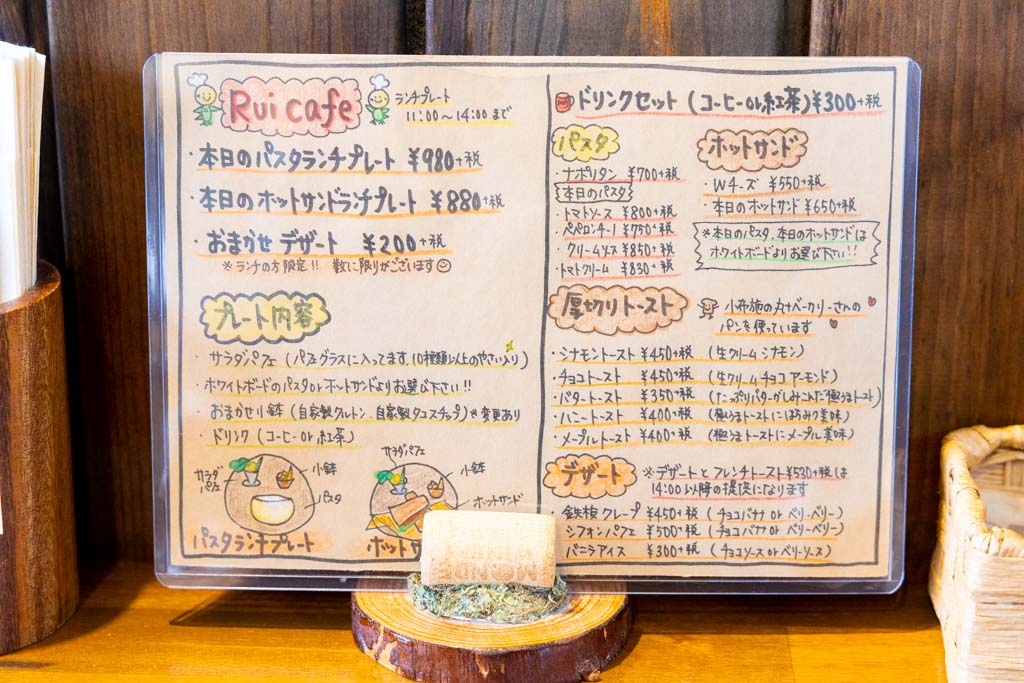 Rui cafe
ランチプレート
11:00〜14:00まで
・本日のパスタランチプレート ¥980+税
・本日のホットサンドランチプレート ¥880+税
・おまかせ デザート ¥200+税
※ランチの方限定!! 数に限りがございます
プレート内容
・サラダパフェ (パフェグラスに入ってます、10種類以上のやさい入り)
・ホワイトボードのパスタorホットサンドよりお選び下さい!!
・おまかせ小鉢 (自家製クルトン、自家製タコスチップ)※変更あり
・ドリンク (コーヒーor紅茶)
サラダパフェ
小鉢
パスタ
パスタランチプレート
サラダパフェ
小鉢
ホットサンド
ホット
ドリンクセット (コーヒーor紅茶)¥300+税
パスタ
・ナポリタン ¥700+税
本日のパスタ
・トマトソース ¥800+税
・ペペロンチーノ ¥750+税
・クリームソース ¥850+税
・トマトクリーム ¥830+税
ホットサンド
・Wチーズ ¥550+税
・本日のホットサンド ¥650+税
※本日のパスタ、本日のホットサンドは
ホワイトボードよりお選び下さい!!
厚切りトースト
小布施の丸十ベーカリーさんの
パンを使っています
・シナモントースト ¥450+税 (生クリーム シナモン)
・チョコトースト ¥450+税 (生クリーム チョコ アーモンド)
・バタートースト ¥350+税 (たっぷりバターがしみこんだ極うまトースト)
・ハニートースト ¥400+税 (極うまトーストにはちみつ美味)
・メープルトースト ¥400+税 (極うまトーストにメープル美味)
デザート
※デザートとフレンチトースト¥530+税は
14:00以降の提供になります
・鉄板クレープ ¥450+税 (チョコバナナ or ベリーベリー)
・シフォンパフェ ¥500+税 (チョコバナナ or ベリーベリー)
・バニラアイス ¥300+税 (チョコソース or ベリーソース)